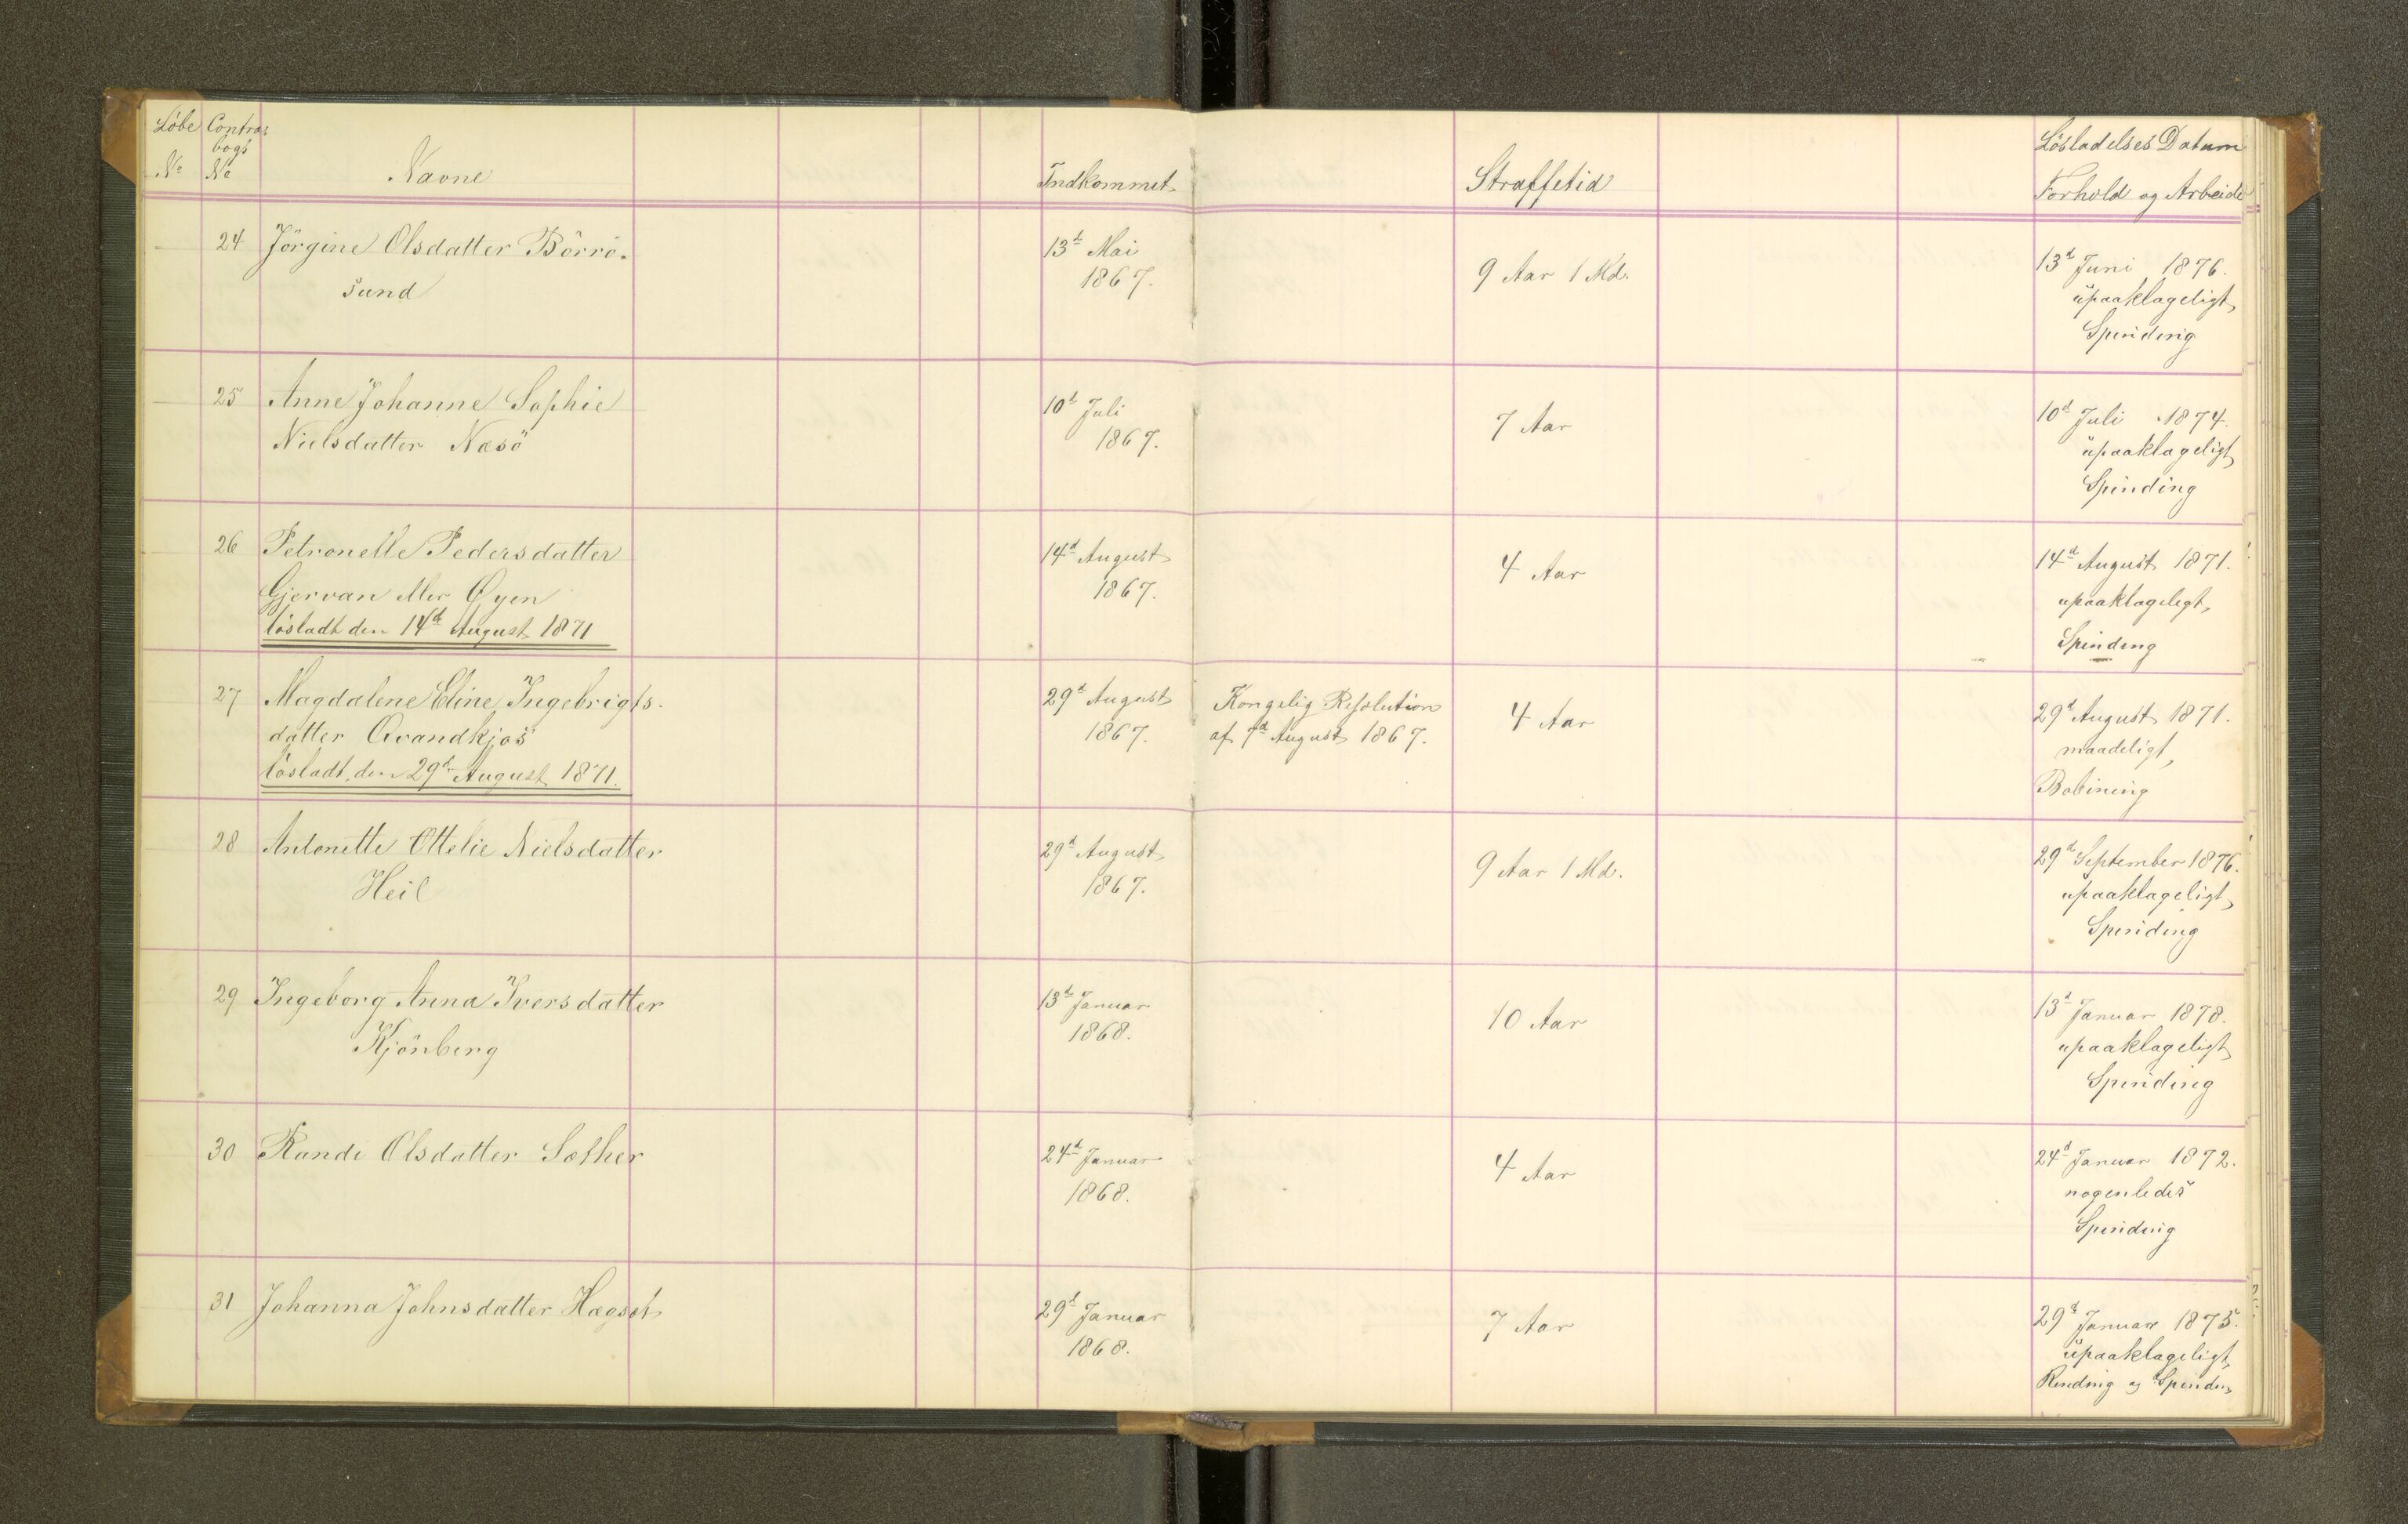 Löbe
No
Contra-
bogs
No
Navne
Indkommet
Straffetid
Lösladelses Datum
Forhold og Arbeide
24
Jörgine Olsdatter Börrö-
sund
13d Mai
1867.
9 Aar 1 Md.
13d Juni 1876.
upaaklageligt,
Spinding
25
Anne Johanne Sophie
Nielsdatter Næsö
10d Juli
1867.
7 Aar
10d Juli 1874.
upaaklageligt,
Spinding
26
Petronelle Pedersdatter
Gjervan eller Øyen
lösladt den 14d August 1871
14d August
1867.
4 Aar
14d August 1871.
upaaklageligt,
Spinding
27
Magdalene Eline Ingebrigts-
datter Qvandkjos
lösladt den 29d August 1871.
29d August
1867.
Kongelig Resolution
af 7d August 1867.
4 Aar
29d August 1871.
maadeligt,
Bobining
28
Antonette Ottelie Nielsdatter
Heil
29d August
1867.
9 Aar 1 Md.
29d September 1876.
upaaklageligt,
Spinding
29
Ingeborg Anna Iversdatter
Kjönberg
13d Januar
1868.
10 Aar
13d Januar 1878.
upaaklageligt,
Spinding
30
Randi Olsdatter Sæther
24d Januar
1868.
4 Aar
24d Januar 1872.
nogenledes
Spinding
31
Johanna Johnsdatter Hægset
29d Januar
1868.
7 Aar
29d Januar 1875.
upaaklageligt,
og